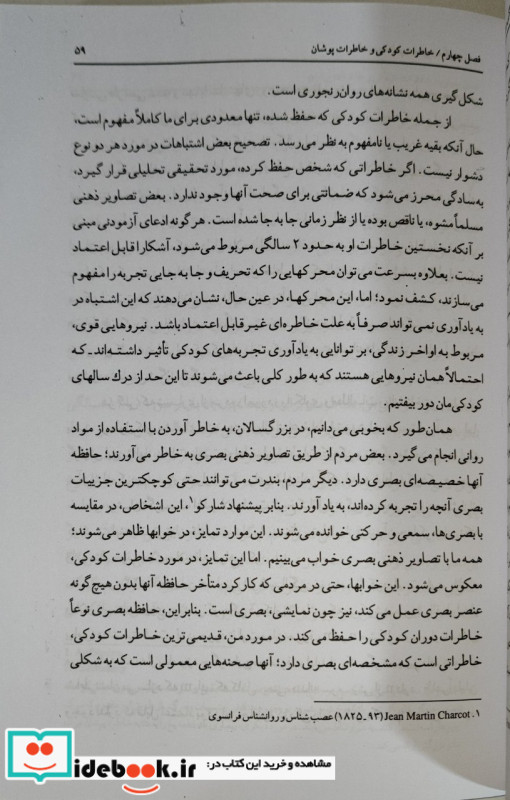 فصل چهارم / خاطرات کودکی و خاطرات پوشان ۵۹
شکل گیری همه نشانه‌های روان‌رنجوری است.
از جمله خاطرات کودکی که حفظ شده، تنها معدودی برای ما کاملاً مفهوم است،
حال آنکه بقیه غریب یا نامفهوم به نظر می‌رسد. تصحیح بعض اشتباهات در مورد هر دو نوع
دشوار نیست. اگر خاطراتی که شخص حفظ کرده، مورد تحقیقی تحلیلی قرار گیرد،
به‌سادگی محرز می‌شود که ضمانتی برای صحت آنها وجود ندارد. بعض تصاویر ذهنی
مسلماً مشوه، یا ناقص بوده یا از نظر زمانی جا به جا شده است. هر گونه ادعای آزمودنی مبنی
بر آنکه نخستین خاطرات او به حدود ۲ سالگی مربوط می‌شود، آشکارا قابل اعتماد
نیست. بعلاوه بسرعت می‌توان محرکهایی را که تحریف و جا به جایی تجربه را مفهوم
می‌سازند، کشف نمود؛ اما، این محرکها، در عین حال، نشان می‌دهند که این اشتباه در
به یادآوری نمی‌تواند صرفاً به علت خاطره‌ای غیر قابل اعتماد باشد. نیروهایی قوی،
مربوط به اواخر زندگی، بر توانایی به یادآوری تجربه‌های کودکی تأثیر داشته‌اند ـ که
احتمالاً همان نیروهایی هستند که به طور کلی باعث می‌شوند تا این حد از درك سالهای
کودکی‌مان دور بیفتیم.
همان‌طور که بخوبی می‌دانیم، در بزرگسالان، به خاطر آوردن با استفاده از مواد
روانی انجام می‌گیرد. بعض مردم از طریق تصاویر ذهنی بصری به خاطر می‌آورند؛ حافظه
آنها خصیصه‌ای بصری دارد. دیگر مردم، بندرت می‌توانند حتی کوچکترین جزییات
بصری آنچه را تجربه کرده‌اند، به یاد آورند. بنابر پیشنهاد شارکو۱، این اشخاص، در مقایسه
با بصری‌ها، سمعی و حرکتی خوانده می‌شوند. این موارد تمایز، در خوابها ظاهر می‌شوند؛
همه ما با تصاویر ذهنی بصری خواب می‌بینیم. اما این تمایز، در مورد خاطرات کودکی،
معکوس می‌شود. این خوابها، حتی در مردمی که کارکرد متأخر حافظه آنها بدون هیچ گونه
عنصر بصری عمل می‌کند، نیز چون نمایشی، بصری است. بنابراین، حافظه بصری نوعاً
خاطرات دوران کودکی را حفظ می‌کند. در مورد من، قدیمی‌ترین خاطرات کودکی،
خاطراتی است که مشخصه‌ای بصری دارد؛ آنها صحنه‌هایی معمولی است که به شکلی
۱. Jean Martin Charcot (۹۳ـ۱۸۲۵) عصب شناس و روانشناس فرانسوی
idebook.ir
مشاهده و خرید این کتاب در: